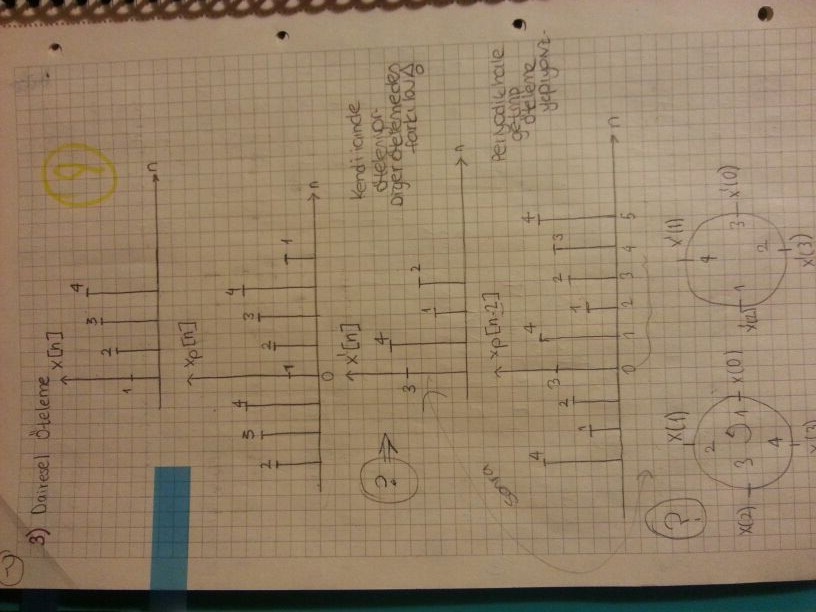 3) Dairesel Öteleme
9
x[n]
1 2 3 4 n
xp[n]
2 3 4 1 2 3 4 1 n
0
? ⇒
x'[n]
3 4 1 2 n
Kendi içinde
öteleniyor.
Diğer ötelemeden
farkı bu
xp[n-2]
4 1 2 3 4 1 2 3 4 n
0 1 2 3 4 5
Periyodik hale
getirip
öteleme
yapıyoruz.
?
x(1)
2
x(2) 3 1 x(0)
4
x(3)
x'(1)
4
x'(2) 1 3 x'(0)
2
x'(3)